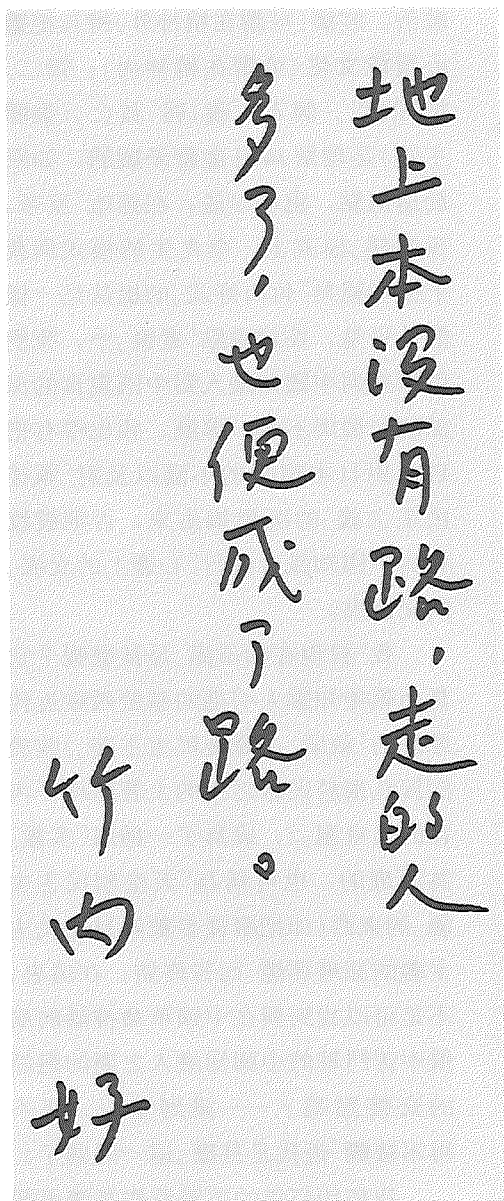 地上本没有路，走的人
多了，也便成了路。
竹内 好